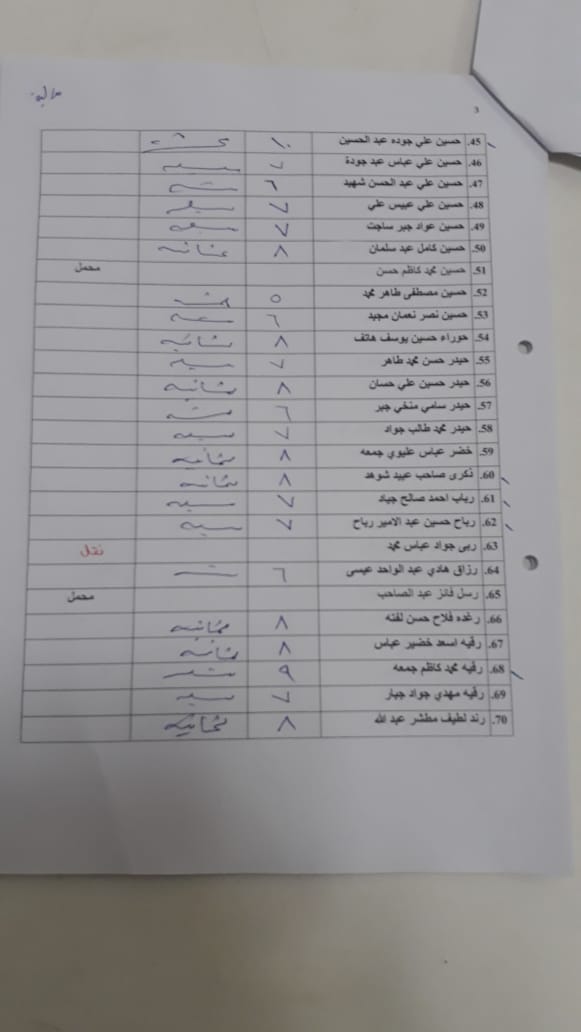 3
45. حسين علي جوده عبد الحسين ١٠ عشرة
46. حسين علي عباس عبد جودة ٧ سبعه
47. حسين علي عبد الحسن شهيد ٦ سته
48. حسين علي عبيس علي ٧ سبعه
49. حسين عواد جبر ساجت ٧ سبعه
50. حسين كامل عبد سلمان ٨ ثمانيه
51. حسين محمد كاظم حسن محمل
52. حسين مصطفى طاهر محمد ٥ خمسه
53. حسين نصر نعمان مجيد ٦ سته
54. حوراء حسين يوسف هاتف ٨ ثمانيه
55. حيدر حسن محمد طاهر ٧ سبعه
56. حيدر حسين علي حسان ٨ ثمانيه
57. حيدر سامي منخي جبر ٦ سته
58. حيدر محمد طالب جواد ٧ سبعه
59. خضر عباس عليوي جمعه ٨ ثمانيه
60. ذكرى صاحب عبيد شوهد ٨ ثمانيه
61. رباب احمد صالح جياد ٧ سبعه
62. رباح حسين عبد الامير رباح ٧ سبعه
63. ربى جواد عباس محمد نقل
64. رزاق هادي عبد الواحد عيسى ٦ سته
65. رسل فائز عبد الصاحب محمل
66. رغده فلاح حسن لفته ٨ ثمانيه
67. رقيه اسعد خضير عباس ٨ ثمانيه
68. رقيه محمد كاظم جمعه ٩ تسعه
69. رقيه مهدي جواد جبار ٧ سبعه
70. رند لطيف مطشر عبد الله ٨ ثمانيه